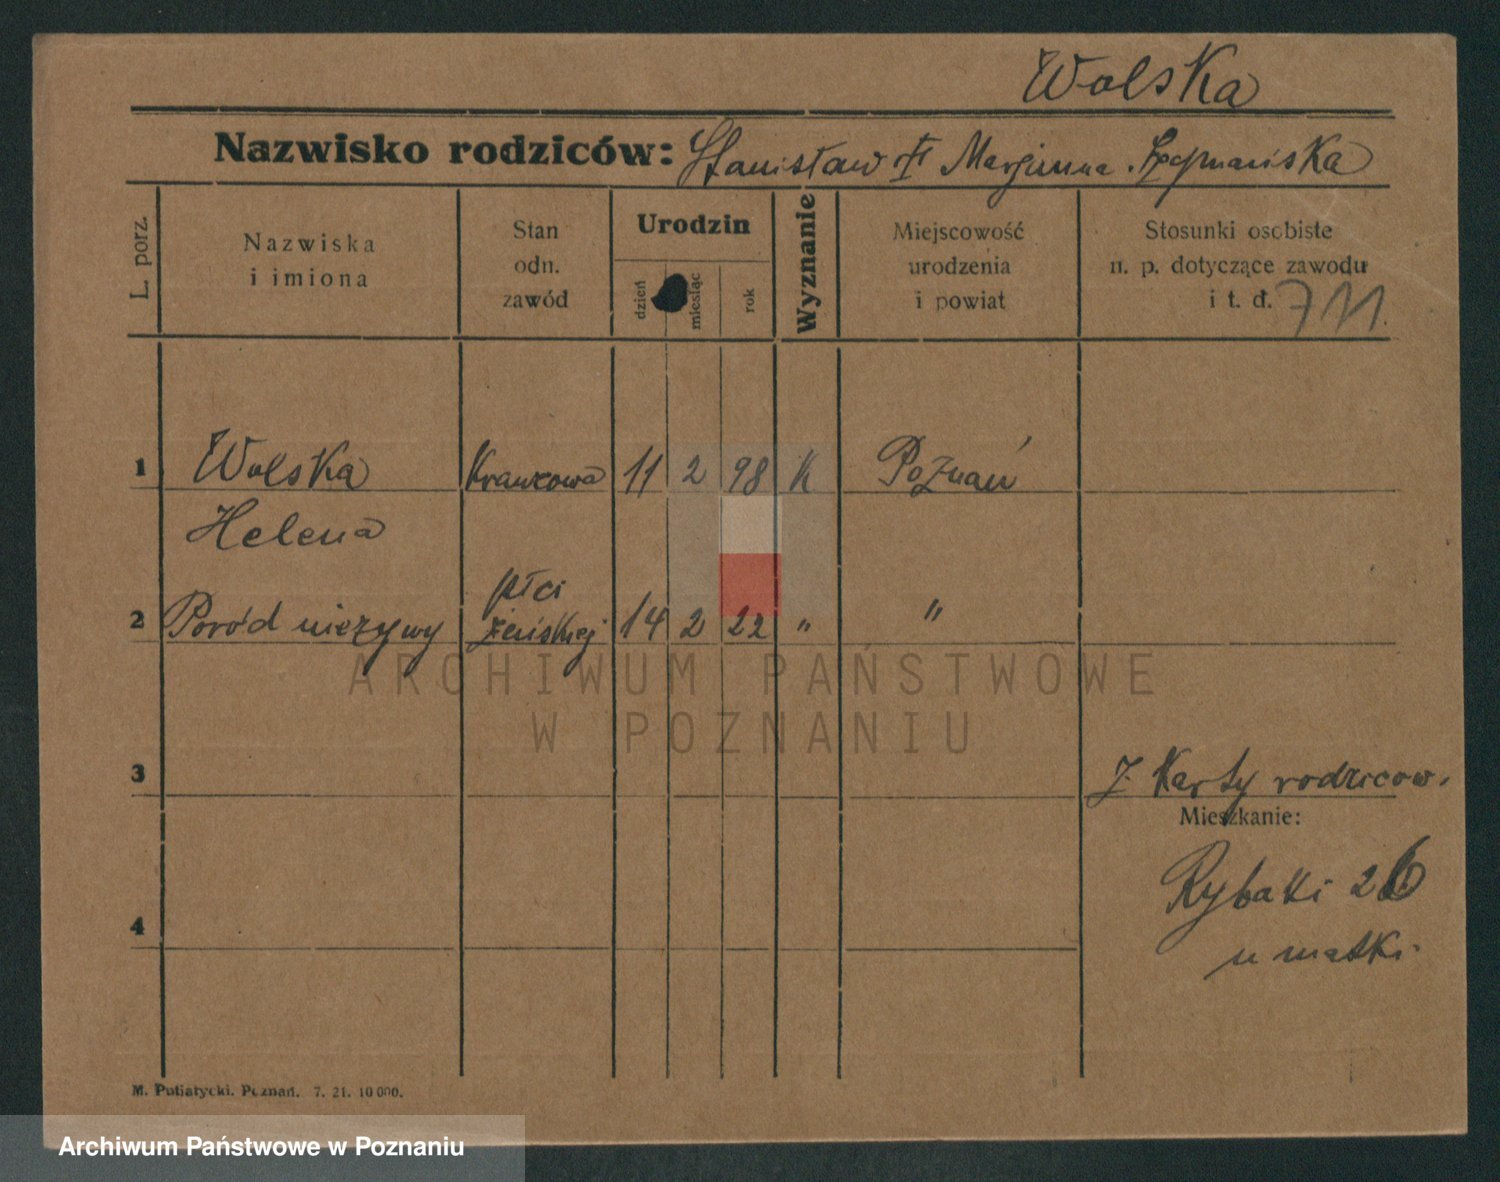 Wolska
Nazwisko rodziców: Stanisław Marjanna
L. porz.
Nazwiska
i imiona
Stan
odn.
zawód
Urodzin
dzień
miesiąc
rok
Wyznanie
Miejscowość
urodzenia
i powiat
Stosunki osobiste
n. p. dotyczące zawodu
i t. d. 711.
1 Wolska Krawcowa 11 2 98 K Poznań
Helena
płci
2 Poród nieżywy żeńskiej 14 2 22 " "
ARCHIWUM PAŃSTWOWE
W POZNANIU
3
z Karty rodziców.
Mieszkanie:
Rybaki 26
4
u matki.
M. Putiatycki. Poznań. 7. 21. 10 000.
Archiwum Państwowe w Poznaniu